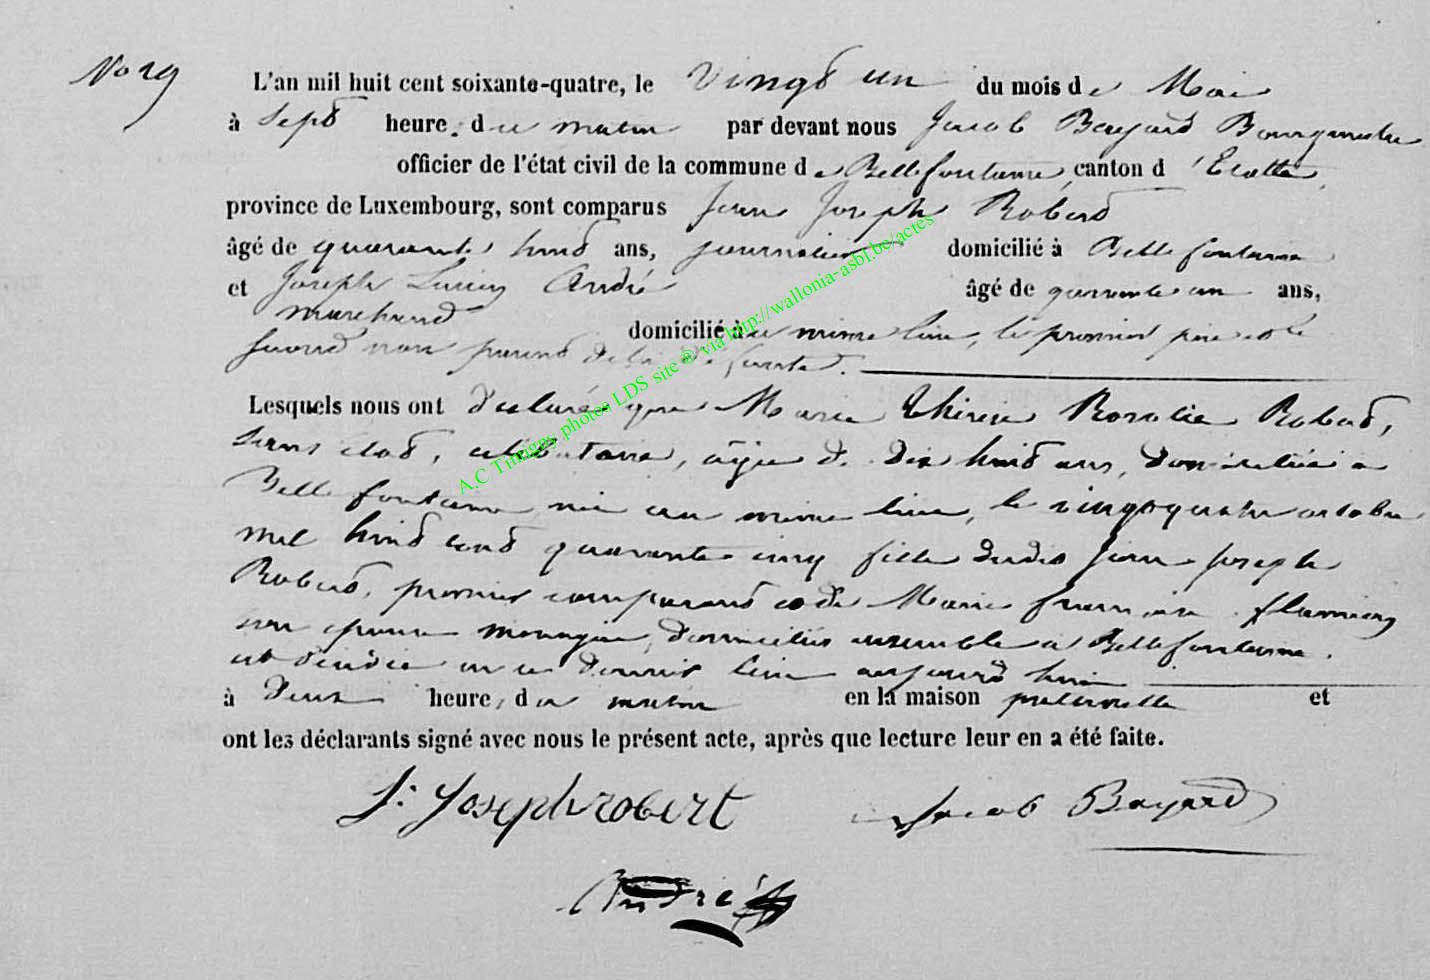 No 19
L'an mil huit cent soixante-quatre, le vingt un du mois de Mai
à Sept heure. du matin par devant nous Jacob Bayard Bourgmestre
officier de l'état civil de la commune de Bellefontaine, canton d'Etalle,
province de Luxembourg, sont comparus Jean Joseph Robert
âgé de quarante huit ans, journalier domicilié à Bellefontaine
et Joseph Lucien André âgé de quarante un ans,
marchand domicilié au même lieu, le premier père et le
second non parent de la défunte.
Lesquels nous ont déclaré que Marie Thérèse Rosalie Robert,
sans état, célibataire, âgée de dix huit ans, domiciliée à
Bellefontaine née au même lieu, le vingt quatre octobre
mil huit cent quarante cinq fille dudit Jean Joseph
Robert, premier comparant et de Marie Françoise
son épouse ménagère, domiciliés ensemble à Bellefontaine.
est décédée en ce dernier lieu aujourd'hui
à deux heure, du matin en la maison paternelle et
ont les déclarants signé avec nous le présent acte, après que lecture leur en a été faite.
J. Joseph robert Jacob Bayard
André
A.C Tintigny photos LDS site ® via http://wallonia-asbl.be/actes